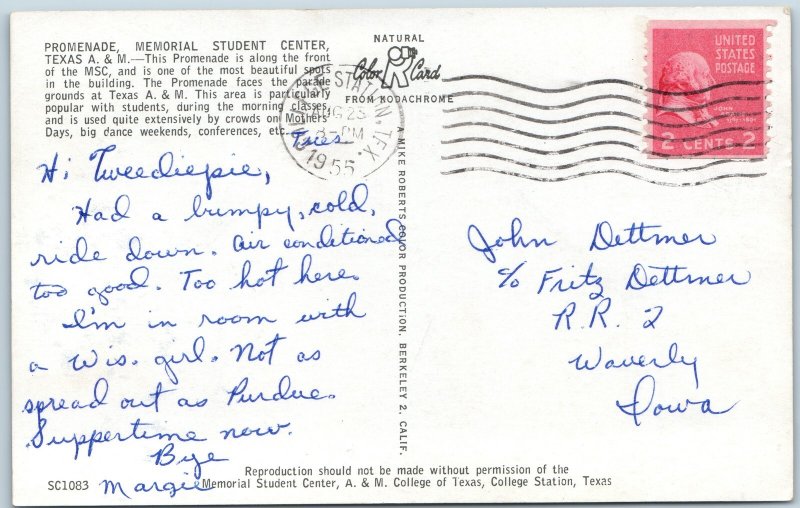 PROMENADE, MEMORIAL STUDENT CENTER,
TEXAS A. & M.—This Promenade is along the front
of the MSC, and is one of the most beautiful spots
in the building. The Promenade faces the parade
grounds at Texas A. & M. This area is particularly
popular with students, during the morning classes
and is used quite extensively by crowds on Mothers
Days, big dance weekends, conferences, etc.
Tues.
Hi Tweediepie,
Had a bumpy, cold,
ride down. Air conditioned
too good. Too hot here.
I'm in room with
a Wis. girl. Not as
spread out as Purdue.
Suppertime now.
Bye
Margie
SC1083
NATURAL
Color Card
FROM KODACHROME
STATION, TEX.
AUG 23
PM
1955
A MIKE ROBERTS COLOR PRODUCTION, BERKELEY 2, CALIF.
UNITED
STATES
POSTAGE
JOHN
2 CENTS 2
John Dettmer
c/o Fritz Dettmer
R.R. 2
Waverly
Iowa
Reproduction should not be made without permission of the
Memorial Student Center, A. & M. College of Texas, College Station, Texas